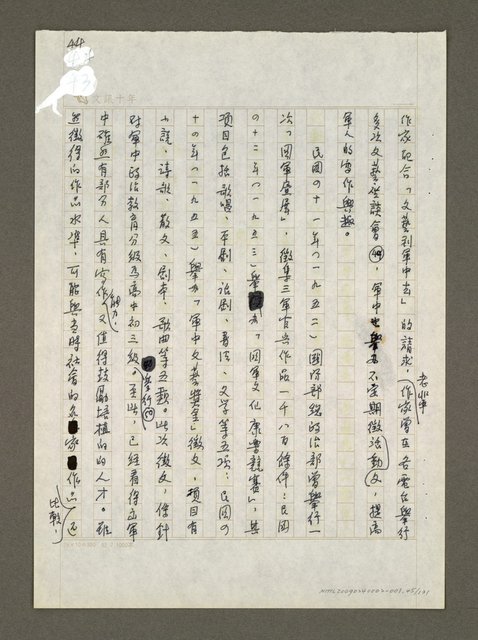 44
文訊十年
作家配合「文藝到軍中去」的請求，作家曾在各電台舉行
多次文藝座談會㊾，軍中也舉辦不定期徵活動文，提高
老軍
軍人的寫作興趣。
民國四十一年（一九五二）國防部總政治部曾舉行一
次「國軍畫展」，徵集三軍官兵作品一千八百餘件；民國
四十二年（一九五三）舉辦「國軍文化康樂競賽」，其
項目包括歌唱、平劇、話劇、書法、文學等五項；民國四
十四年（一九五五）舉辦「軍中文藝獎金」徵文，項目有
小說、詩歌、散文、劇本、歌曲等五類。此次徵文，係針
對軍中政治教育分級為高中初三級。至此，已經看得出軍
舉行㊿
中確然有部分人具有寫作能力，又值得鼓勵培植的的人才。雖
然徵得的作品水準，可能與當時社會的名家作品，還
比較，
NMTL20090240002-001.45/121